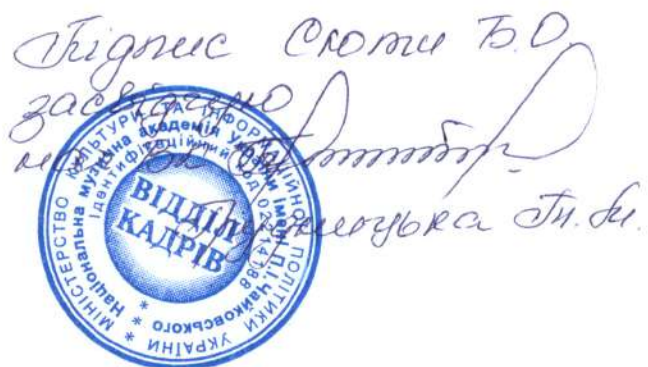 Підпис Сюти Б.О.
засвідчую
МІНІСТЕРСТВО КУЛЬТУРИ ТА ІНФОРМАЦІЙНОЇ ПОЛІТИКИ УКРАЇНИ *
Національна музична академія України імені П.І.Чайковського *
Ідентифікаційний код 02214188
ВІДДІЛ
КАДРІВ